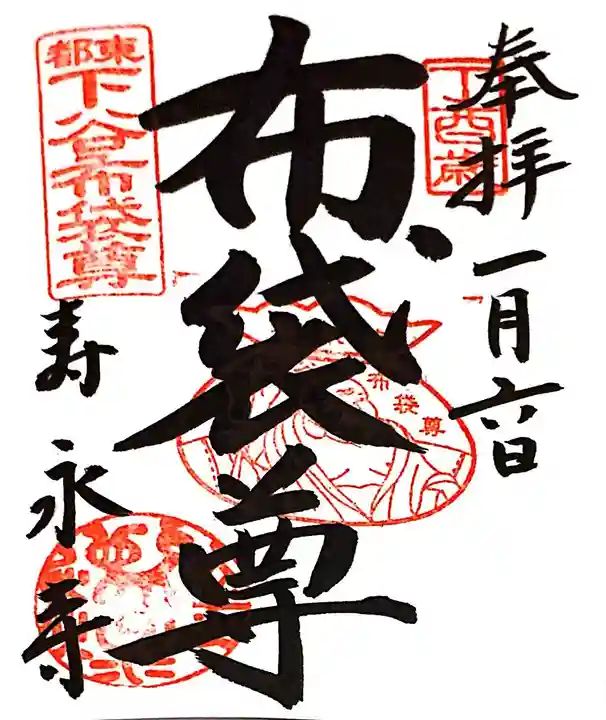 奉拝 一月六日
丁酉歳
布袋尊
布袋尊
東都
下谷布袋尊
寿永寺